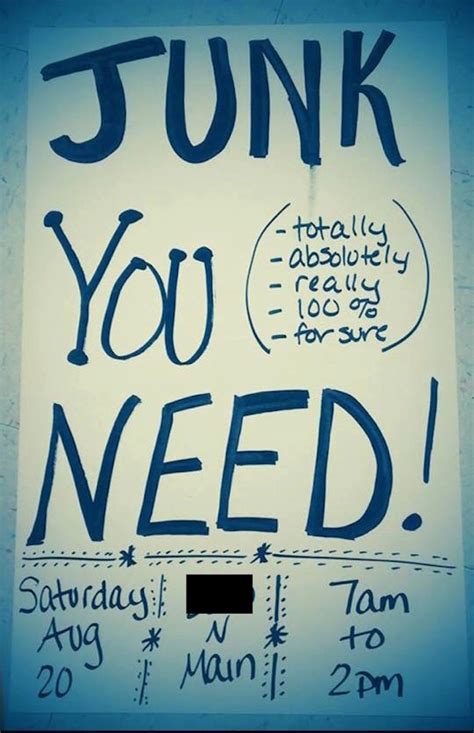 JUNK
YOU
- totally
- absolutely
- really
- 100%
- for sure
NEED!
Saturday
Aug
20
N
Main
7am
to
2pm